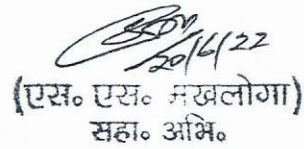 20/6/22
(एस० एस० मखलोगा)
सहा० अभि०